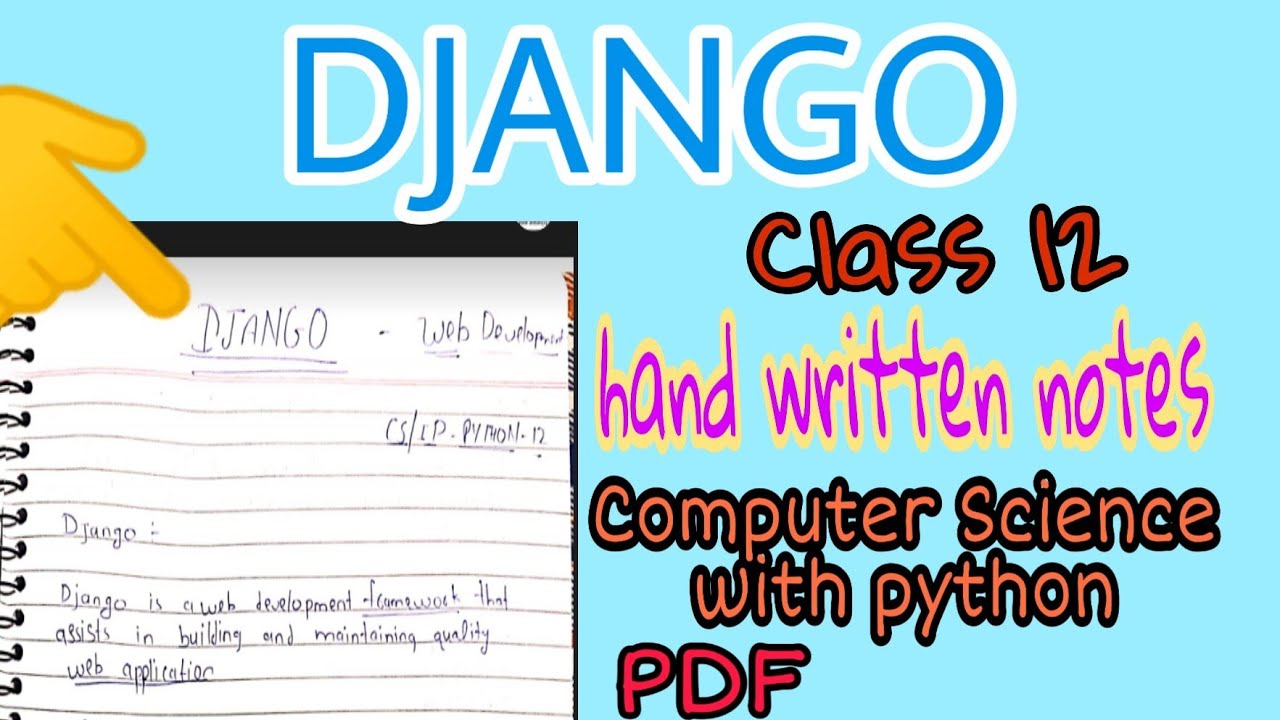 DJANGO
Class 12
hand written notes
Computer Science
with python
PDF
DJANGO - Web Development
CS/IP-PYTHON-12
Django :-
Django is a web development framework that
assists in building and maintaining quality
web application